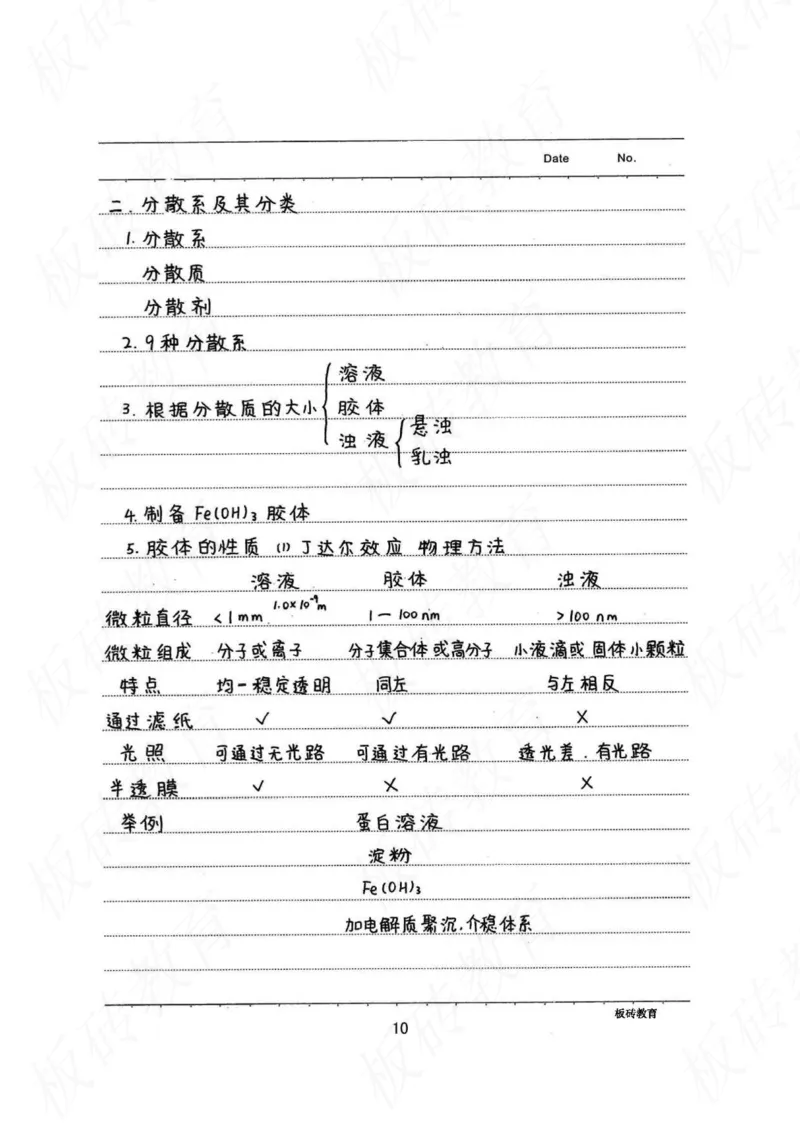 Date No.
二.分散系及其分类
1.分散系
分散质
分散剂
2.9种分散系
3.根据分散质的大小
溶液
胶体
浊液
悬浊
乳浊
4.制备Fe(OH)₃胶体
5.胶体的性质 (1)丁达尔效应 物理方法
溶液 胶体 浊液
微粒直径 <1mm 1.0×10⁻⁹m 1—100nm >100nm
微粒组成 分子或离子 分子集合体或高分子 小液滴或固体小颗粒
特点 均一稳定透明 同左 与左相反
通过滤纸 ✓ ✓ ×
光照 可通过无光路 可通过有光路 透光差.有光路
半透膜 ✓ × ×
举例 蛋白溶液
淀粉
Fe(OH)₃
加电解质聚沉.介稳体系
板砖教育
10